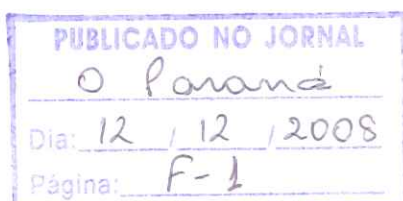 PUBLICADO NO JORNAL
O Paraná
Dia: 12 / 12 / 2008
Página: F-1